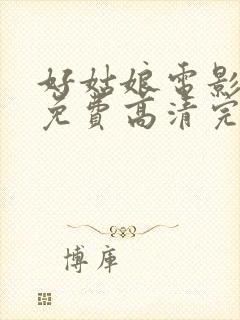 好姑娘电影
免费高清完
博库